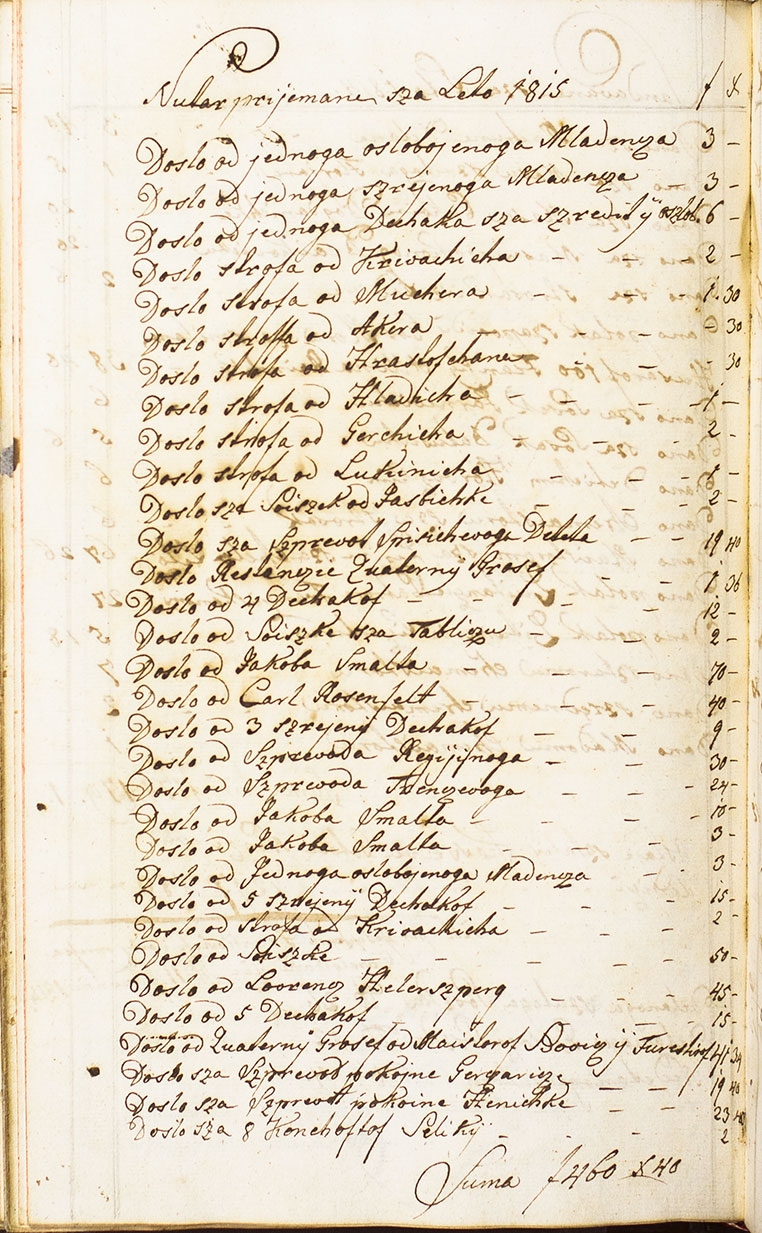 Nutar prijemane sza Leto 1815 f x
Doslo od jednoga oslobojenoga Mladencza 3 –
Doslo od jednoga szrejenoga Mladencza 3 –
Doslo od jednoga Dechaka sza szredit y oszlob. 6 –
Doslo strofa od Krivachicha – – 2 –
Doslo strofa od Muchera – – – 1 30
Doslo strofa od Akera – – – – 30
Doslo strofa od Hrastofchana – – – 30
Doslo strofa od Hladicha – – – 1 –
Doslo strofa od Gerchicha – – – 2 –
Doslo strofa od Lukinicha – – – 1 –
Doslo sza Loiszek od Jasbichke – – – 2 –
Doslo sza Szprevod Spisichevoga Deteta – – 19 40
Doslo Restanczie Quaterny Grosef – – 1 36
Doslo od 4 Dechakof – – – 12 –
Doslo od Loiszke sza Tabliczu – – – 2 –
Doslo od Jakoba Smalta – – – 70 –
Doslo od Carl Rosenfelt – – – 40 –
Doslo od 3 szrejeny Dechakof – – – 9 –
Doslo od Szprevoda – – – 30 –
Doslo od Szprevoda – – – 24 –
Doslo od Jakoba Smalta – – – – 10 –
Doslo od Jakoba Smalta – – – 3 –
Doslo od Jednoga oslobojenoga Mladencza – – 3 –
Doslo od 5 szrejeny Dechakof – – – 15 –
Doslo od strofa od Krivachicha – – – 2 –
Doslo od Loiszke – – – – 50 –
Doslo od Lovrencz Helerszperg – – – 45 –
Doslo od 5 Dechakof – – – 15 –
Doslo od Quaterny Grosef od Maistorof y 41 34
Doslo sza Szprevod pokojne – – 19 40
Doslo sza Szprevod pokoine Henichke – – 23 40
Doslo sza 8 – – – 2
Suma f 460 x 40